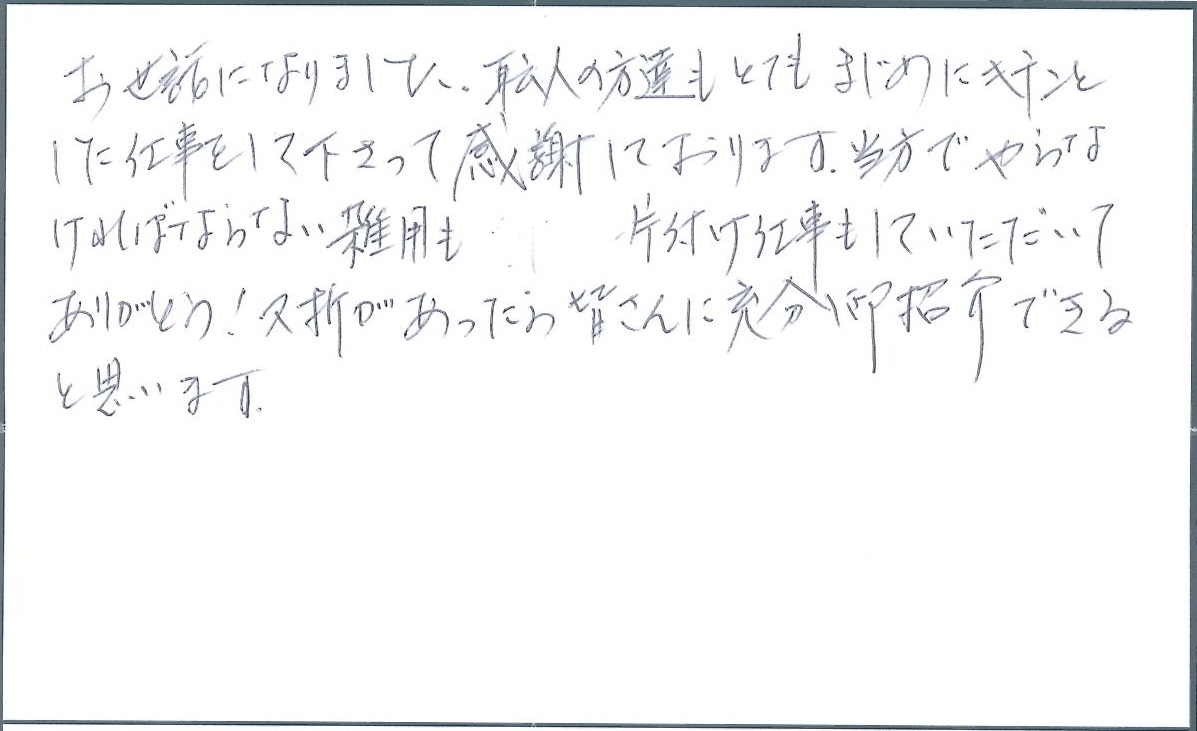 お世話になりました。職人の方達もとてもまじめにキチンと
した仕事をして下さって感謝しております。当方でやらな
ければならない雑用も 片付け仕事もしていただいて
ありがとう!又折があったら皆さんに充分御紹介できる
と思います。